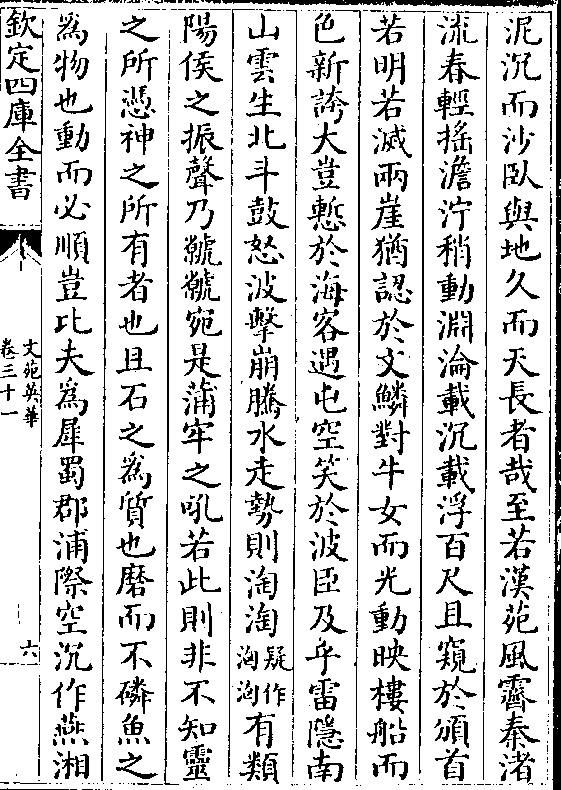 泥沉而沙臥與地久而天長者哉至若漢苑風霽秦渚
流春輕揺澹泞稍動淵淪載沉載浮百尺且窺於頒首
若明若滅兩崖猶認於文鱗對牛女而光動映樓船而
色新誇大豈慙於海客遇屯空笑於波臣及乎雷隱南
山雲生北斗鼓怒波擊崩騰水走勢則淘淘疑作洶洶有類
陽侯之振聲乃虩虩宛是蒲牢之吼若此則非不知靈
之所憑神之所有者也且石之為質也磨而不磷魚之
為物也動而必順豈比夫為犀蜀郡浦際空沉作燕湘
欽定四庫全書
文苑英華
卷三十一
六